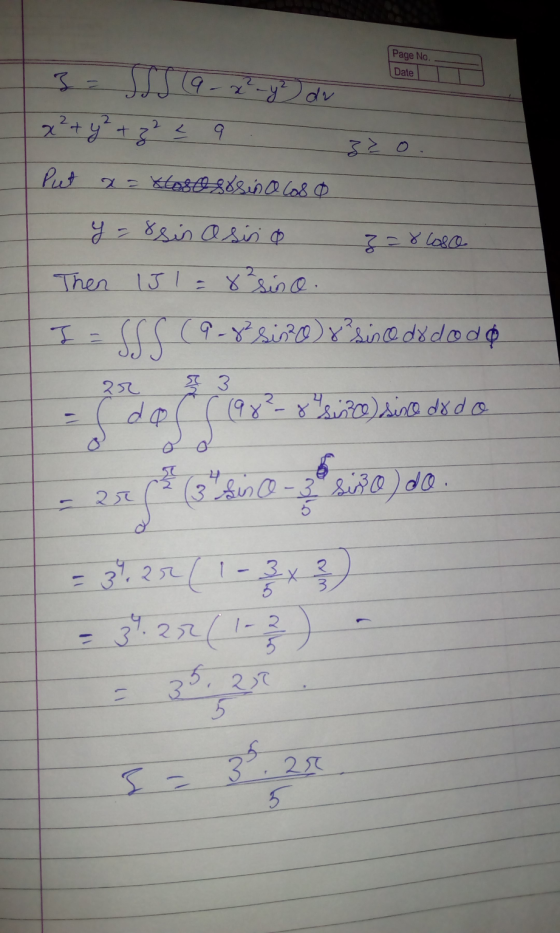 Page No.
Date
I = ∭ (9 - x² - y²) dv
x² + y² + z² ≤ 9 z ≥ 0.
Put x = r sinθ cosφ
y = r sinθ sinφ z = r cosθ
Then |J| = r² sinθ.
I = ∭ (9 - r² sin²θ) r² sinθ dr dθ dφ
= ∫₀^{2π} dφ ∫₀^{π/2} ∫₀^{3} (9r² - r⁴ sin²θ) sinθ dr dθ
= 2π ∫₀^{π/2} (3⁴ sinθ - 3⁵/5 sin³θ) dθ.
= 3⁴ · 2π (1 - 3/5 × 2/3)
= 3⁴ · 2π (1 - 2/5) -
= 3⁵ · 2π / 5 .
I = 3⁵ · 2π / 5 .